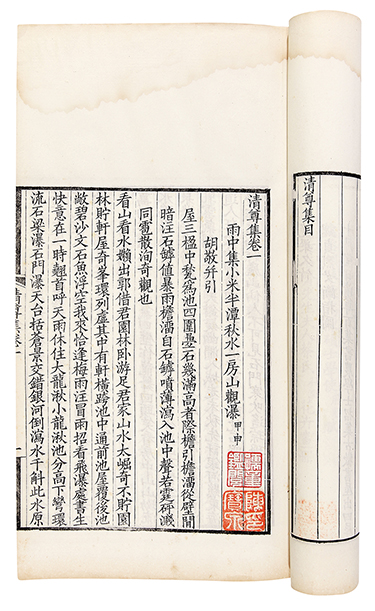 清尊集目
清尊集卷一
雨中集小米半潭秋水一房山觀瀑 甲申
胡敬并引
屋三楹中甃為池四圍壘石幾滿高者際檐引檐溜從壁間
暗注石罅值暴雨檐溜自石罅噴薄瀉入池中聲若霆砰濺
同雹散洵奇觀也
看山看水嬾出郭借君園林臥游足君家山水太崛奇不貯園
林貯軒屋奇峯環列虛其中有軒橫跨池中通前池屋覆後池
敞碧沙文石魚浮空我來恰逢梅雨注冒雨招看飛瀑處書生
快意在一時翹首呼天雨休住大龍湫小龍湫池分高下彎環
流石梁瀑石門瀑天台括蒼景交錯銀河倒瀉水千斛此水原
清尊集卷一
一